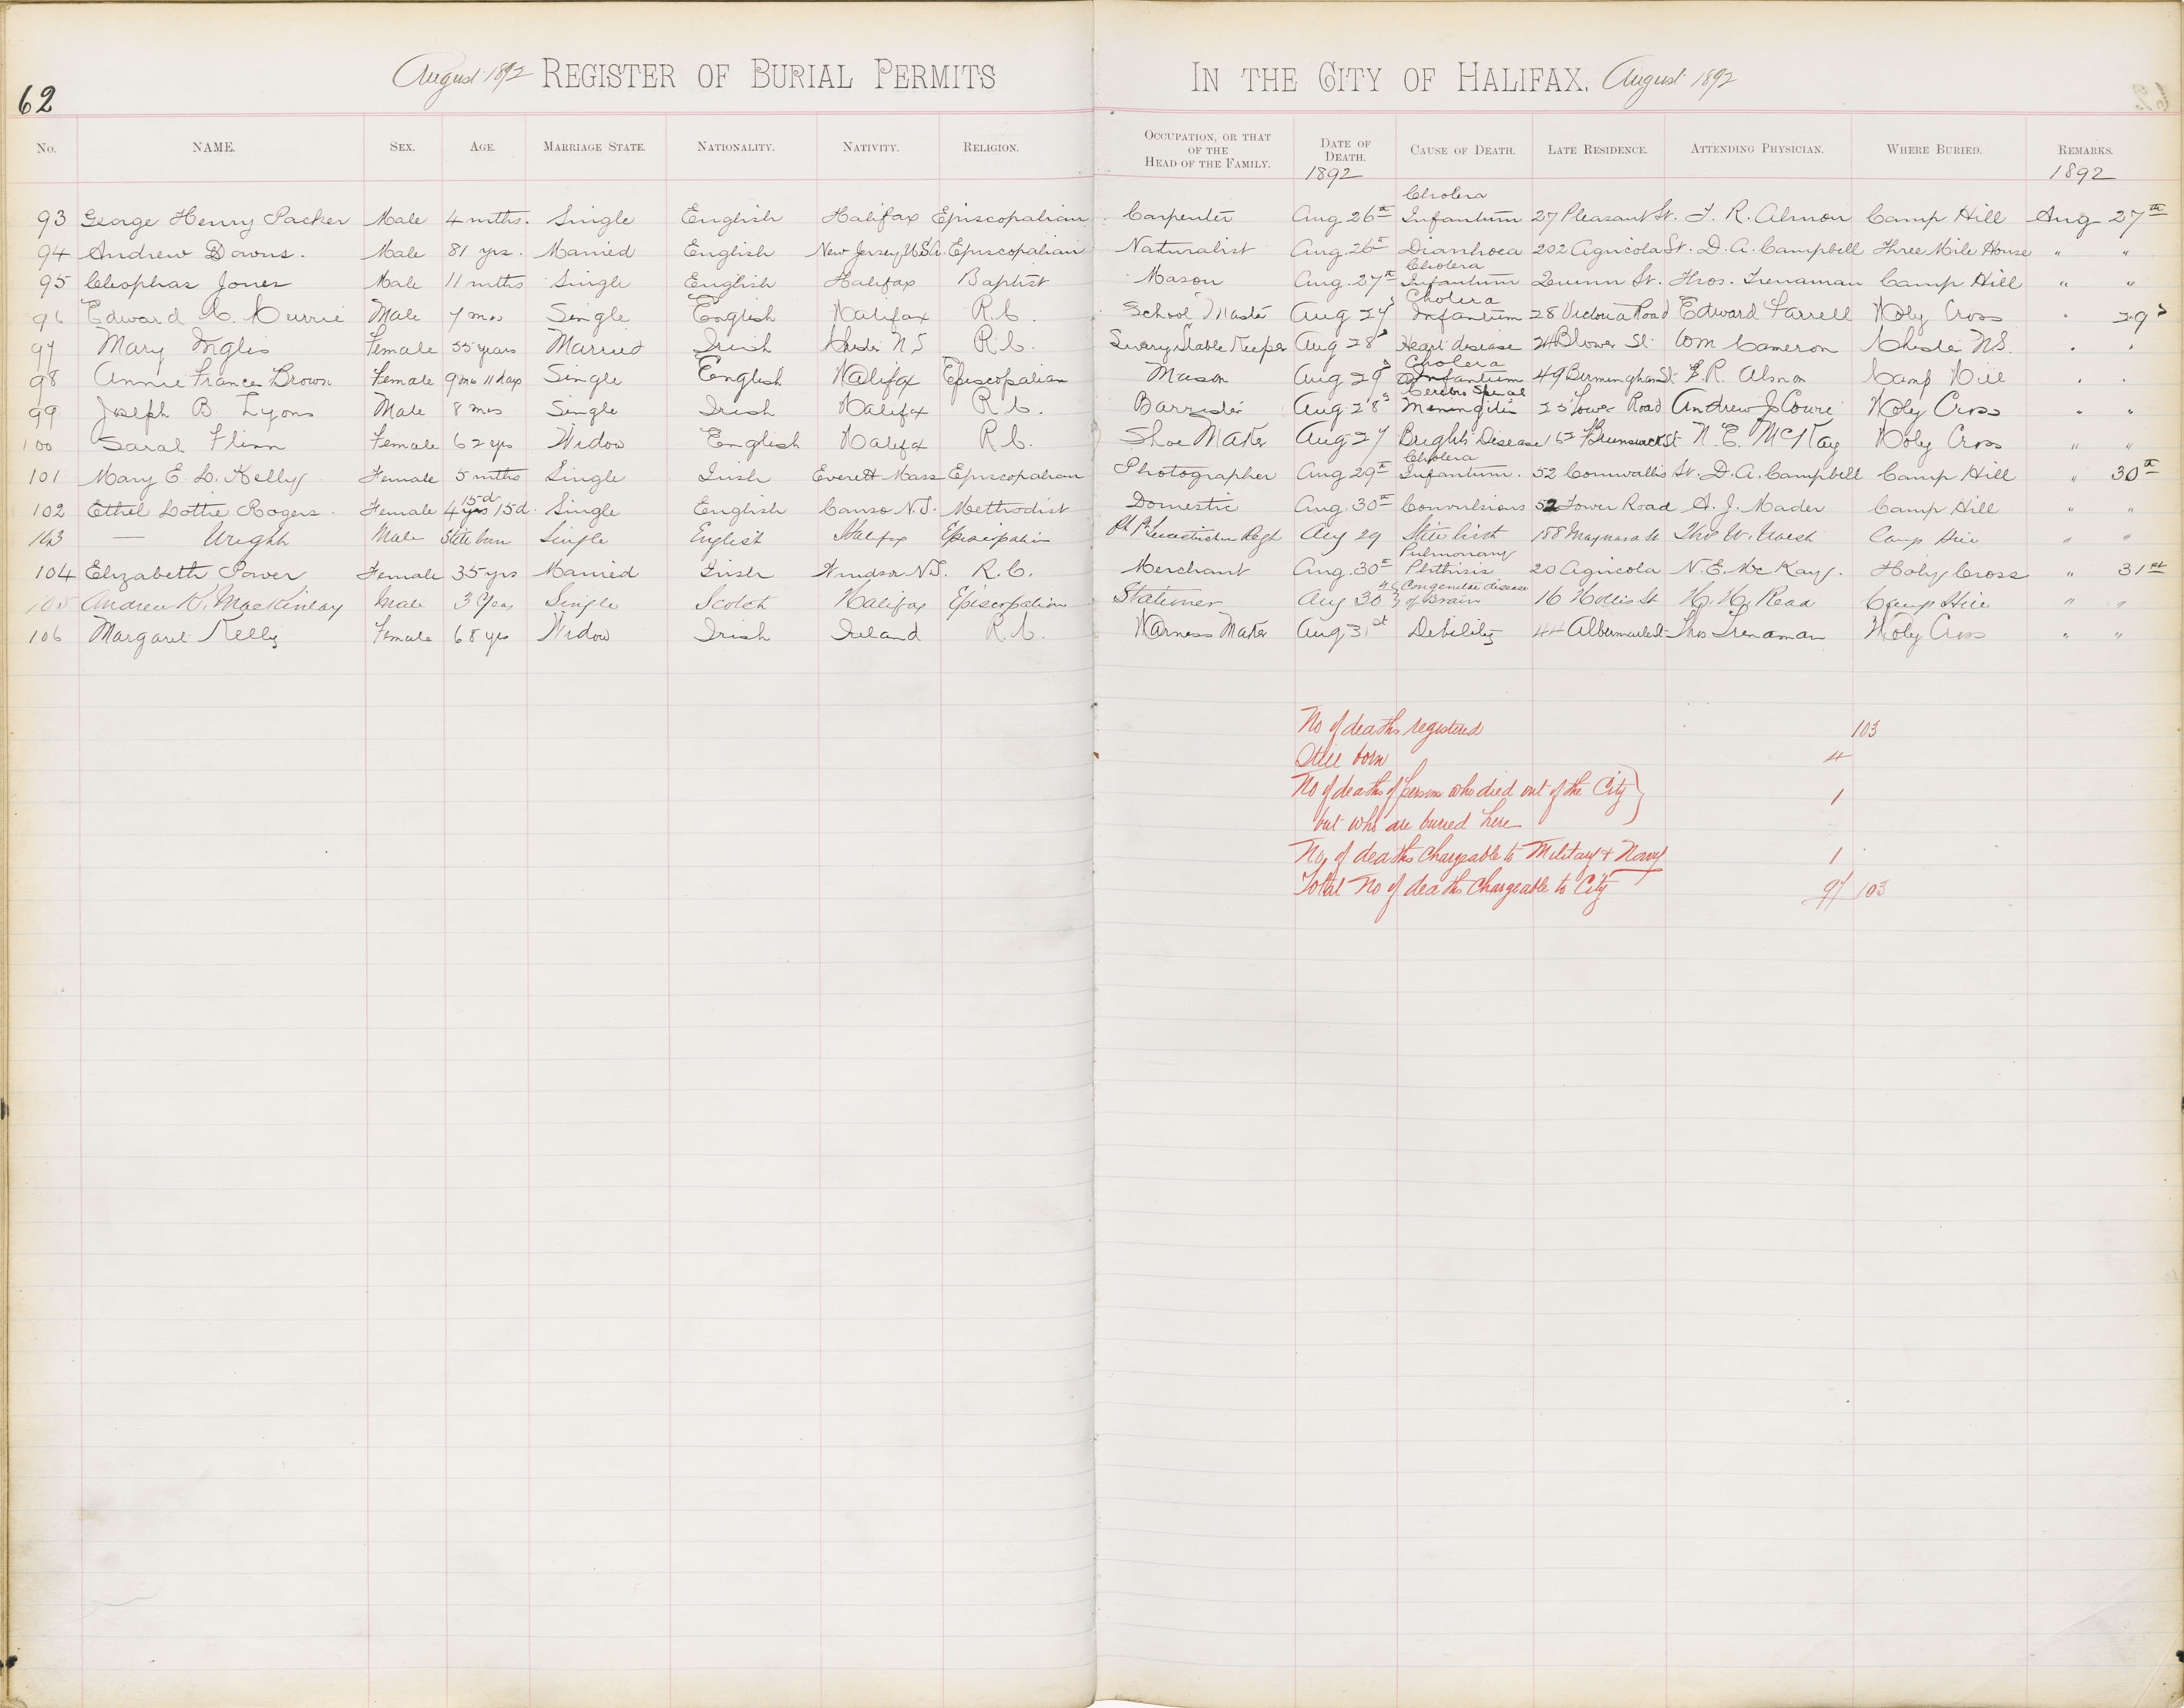 62
August 1892 REGISTER OF BURIAL PERMITS IN THE CITY OF HALIFAX. August 1892
No. NAME. SEX. AGE. MARRIAGE STATE. NATIONALITY. NATIVITY. RELIGION. OCCUPATION, OR THAT OF THE HEAD OF THE FAMILY. DATE OF DEATH. 1892 CAUSE OF DEATH. LATE RESIDENCE. ATTENDING PHYSICIAN. WHERE BURIED. REMARKS. 1892
93 George Henry Packer Male 4 mths. Single English Halifax Episcopalian Carpenter Aug. 26th Cholera Infantum 27 Pleasant St. F. R. Almon Camp Hill Aug 27th
94 Andrew Downs. Male 81 yrs. Married English New Jersey, U.S.A. Episcopalian Naturalist Aug. 26th Diarrhoea 202 Agricola St. D. A. Campbell Three Mile House " "
95 Cleophas Jones Male 11 mths Single English Halifax Baptist Mason Aug. 27th Cholera Infantum Quinn St. Thos. Trenaman Camp Hill " "
96 Edward C. Currie Male 7 mos Single English Halifax R.C. School Master Aug 27 Cholera Infantum 28 Victoria Road Edward Farrell Holy Cross " 29
97 Mary Inglis Female 55 years Married Irish Chester N.S R.C. Livery Stable Keeper Aug 28 Heart disease 24 Blower St. Wm Cameron Chester N.S. " "
98 Annie Frances Brown Female 9 mo 11 days Single English Halifax Episcopalian Mason Aug 29 Cholera Infantum 49 Birmingham St F. R. Almon Camp Hill " "
99 Joseph B. Lyons Male 8 mos Single Irish Halifax R.C. Barrister Aug 28 Cerebro Spinal Meningitis 25 Tower Road Andrew J Cowie Holy Cross " "
100 Sarah Flinn Female 62 yrs Widow English Halifax R.C. Shoe Maker Aug 27 Brights Disease 162 Brunswick St N. E. McKay Holy Cross " "
101 Mary E. L. Kelly Female 5 mths Single Irish Everett Mass Episcopalian Photographer Aug 29th Cholera Infantum. 52 Cornwallis St. D. A. Campbell Camp Hill " 30th
102 Ethel Lottie Rogers. Female 4 yrs 15 d. 15 d Single English Canso N.S. Methodist Domestic Aug. 30th Convulsions 52 Tower Road A. J. Mader Camp Hill " "
103 — Wright Male Still born Single English Halifax Episcopalian Regt Aug 29 Still birth 188 Maynard St Thos W. Walsh Camp Hill " "
104 Elizabeth Power Female 35 yrs Married Irish Windsor N.S. R.C. Merchant Aug. 30th Pulmonary Phthisis 20 Agricola N. E. McKay. Holy Cross " 31st
105 Andrew K. MacKinlay Male 3 Years Single Scotch Halifax Episcopalian Stationer Aug 30 Congenital disease of Brain 16 Hollis St H. H. Read Camp Hill " "
106 Margaret Kelly Female 68 yrs Widow Irish Ireland R.C. Harness Maker Aug 31st Debility 44 Albermarle St Thos Trenaman Holy Cross " "
No of deaths registered 103
Still born 4
No of deaths of persons who died out of the City } 1
but who are buried here
No, of deaths chargeable to Military & Navy 1
Total No of deaths chargeable to City 97 103